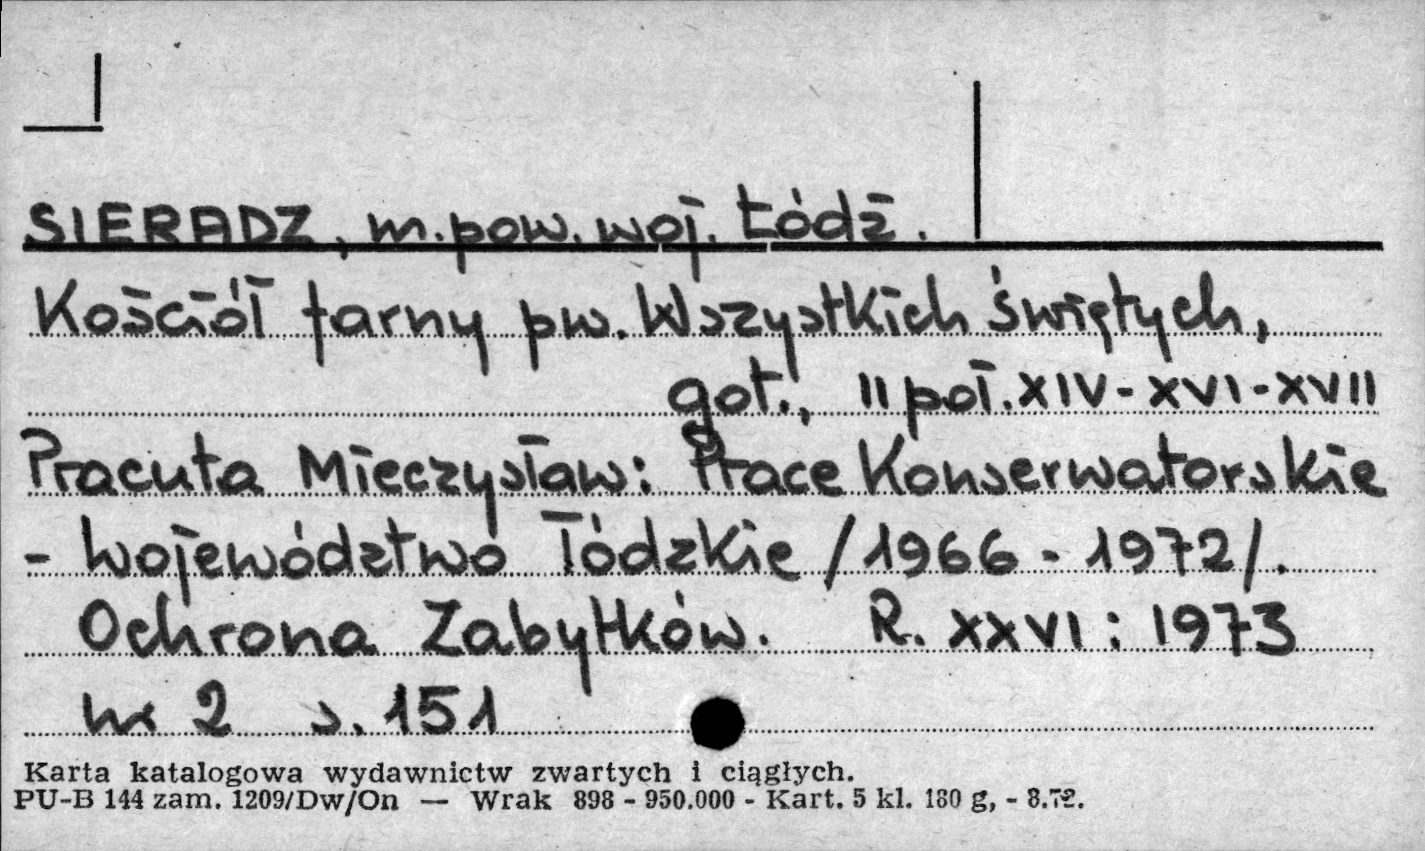 SIERADZ, m.pow. woj. Łódź.
Kościół farny pw. Wszystkich Świętych,
got., II poł. XIV - XVI - XVII
Pracuta Mieczysław: Prace Konserwatorskie
- województwo łódzkie /1966 - 1972/.
Ochrona Zabytków. R. XXVI: 1973
nr 2 s. 151
Karta katalogowa wydawnictw zwartych i ciągłych.
PU-B 144 zam. 1209/Dw/On — Wrak 898 - 950.000 - Kart. 5 kl. 180 g, - 8.72.